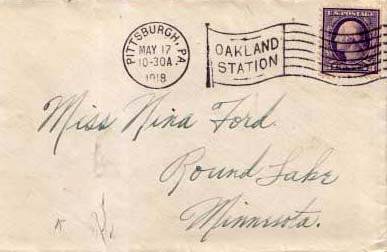 PITTSBURGH, PA.
MAY 17
10-30A
1918
OAKLAND
STATION
U.S. POSTAGE
Miss Nina Ford.
Round Lake
Minnesota.